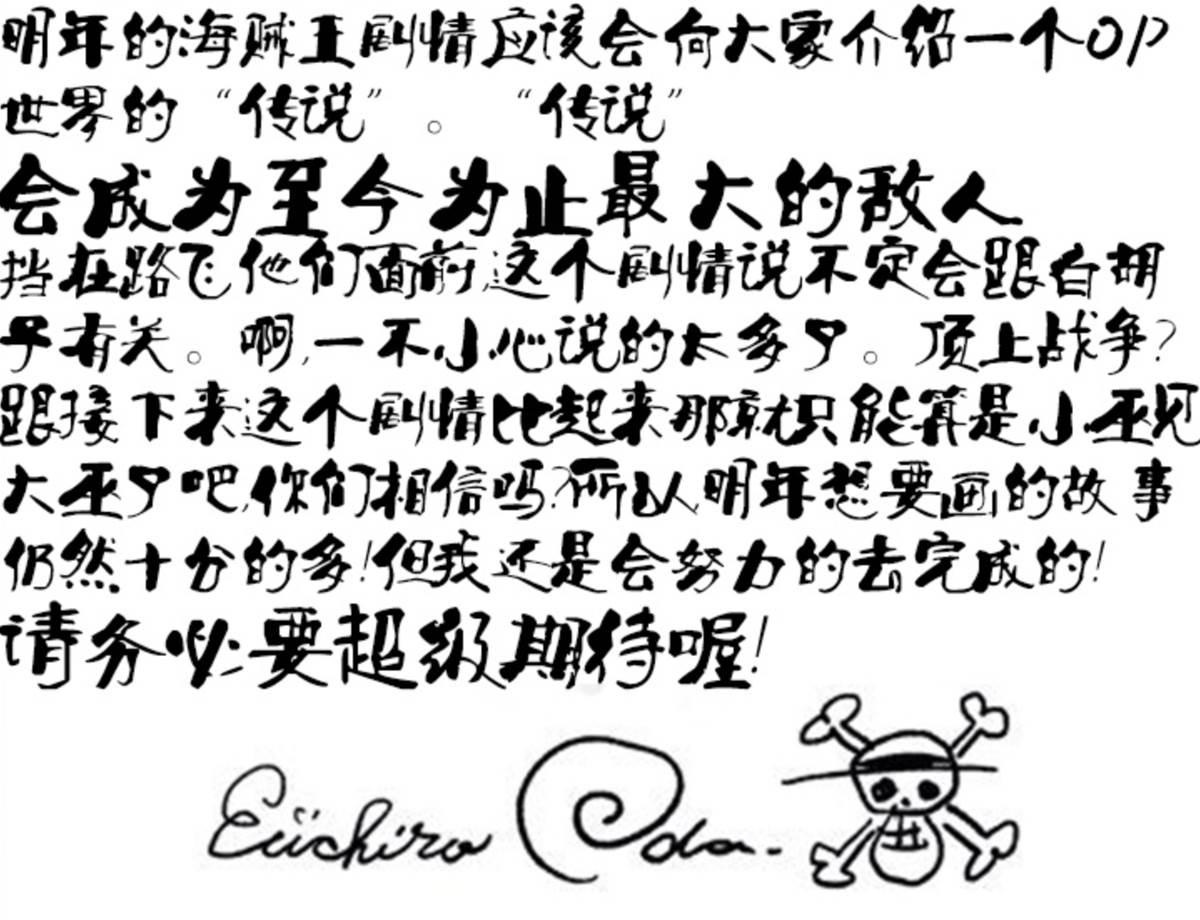 明年的海贼王剧情应该会向大家介绍一个OP
世界的“传说”。 “传说”
会成为至今为止最大的敌人
挡在路飞他们面前,这个剧情说不定会跟白胡
子有关。啊,一不小心说的太多了。顶上战争?
跟接下来这个剧情比起来那就只能算是小巫见
大巫了吧,你们相信吗?所以,明年想要画的故事
仍然十分的多!但我还是会努力的去完成的!
请务必要超级期待喔!
Eiichiro Oda.